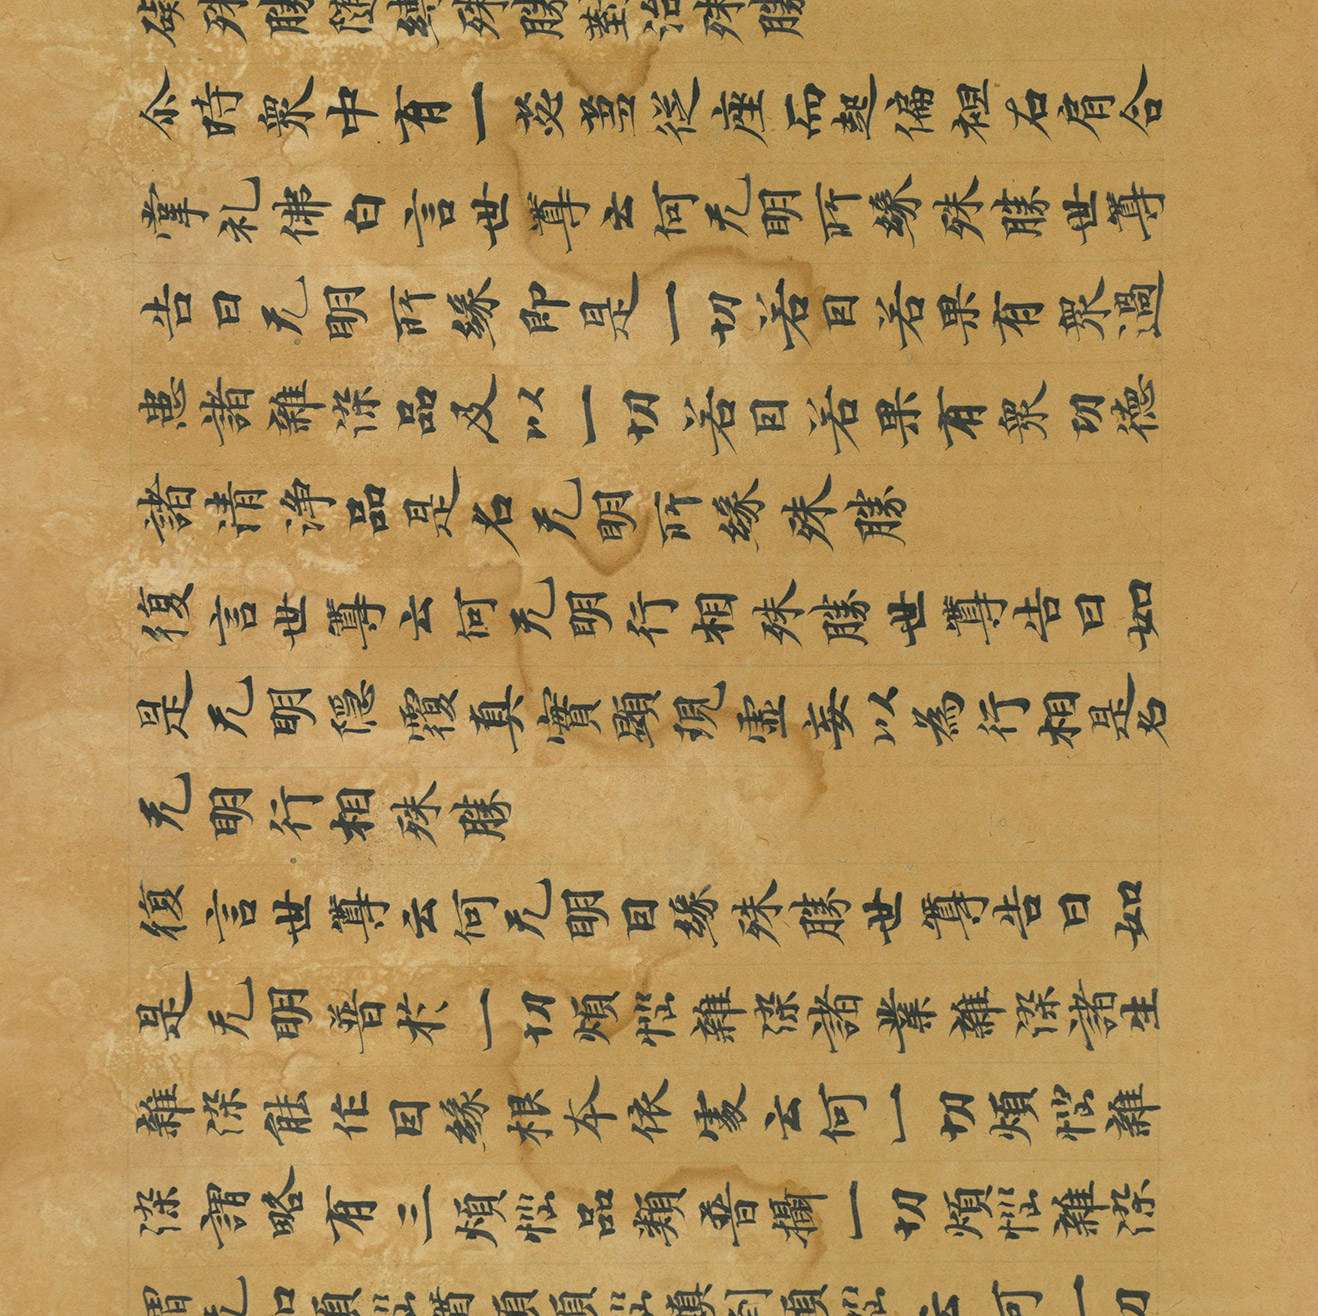 礙殊勝隨縛殊勝對治殊勝
尒時眾中有一苾蒭從座而起偏袒右肩合
掌礼佛白言世尊云何无明所緣殊勝世尊
告曰无明所緣即是一切若因若果有眾過
患諸雜染品及以一切若因若果有眾功德
諸清淨品是名无明所緣殊勝
復言世尊云何无明行相殊勝世尊告曰如
是无明隱覆真實顯現虛妄以為行相是名
无明行相殊勝
復言世尊云何无明因緣殊勝世尊告曰如
是无明普於一切煩惱雜染諸業雜染諸生
雜染能作因緣根本依處云何一切煩惱雜
染謂略有三煩惱品類普攝一切煩惱雜染